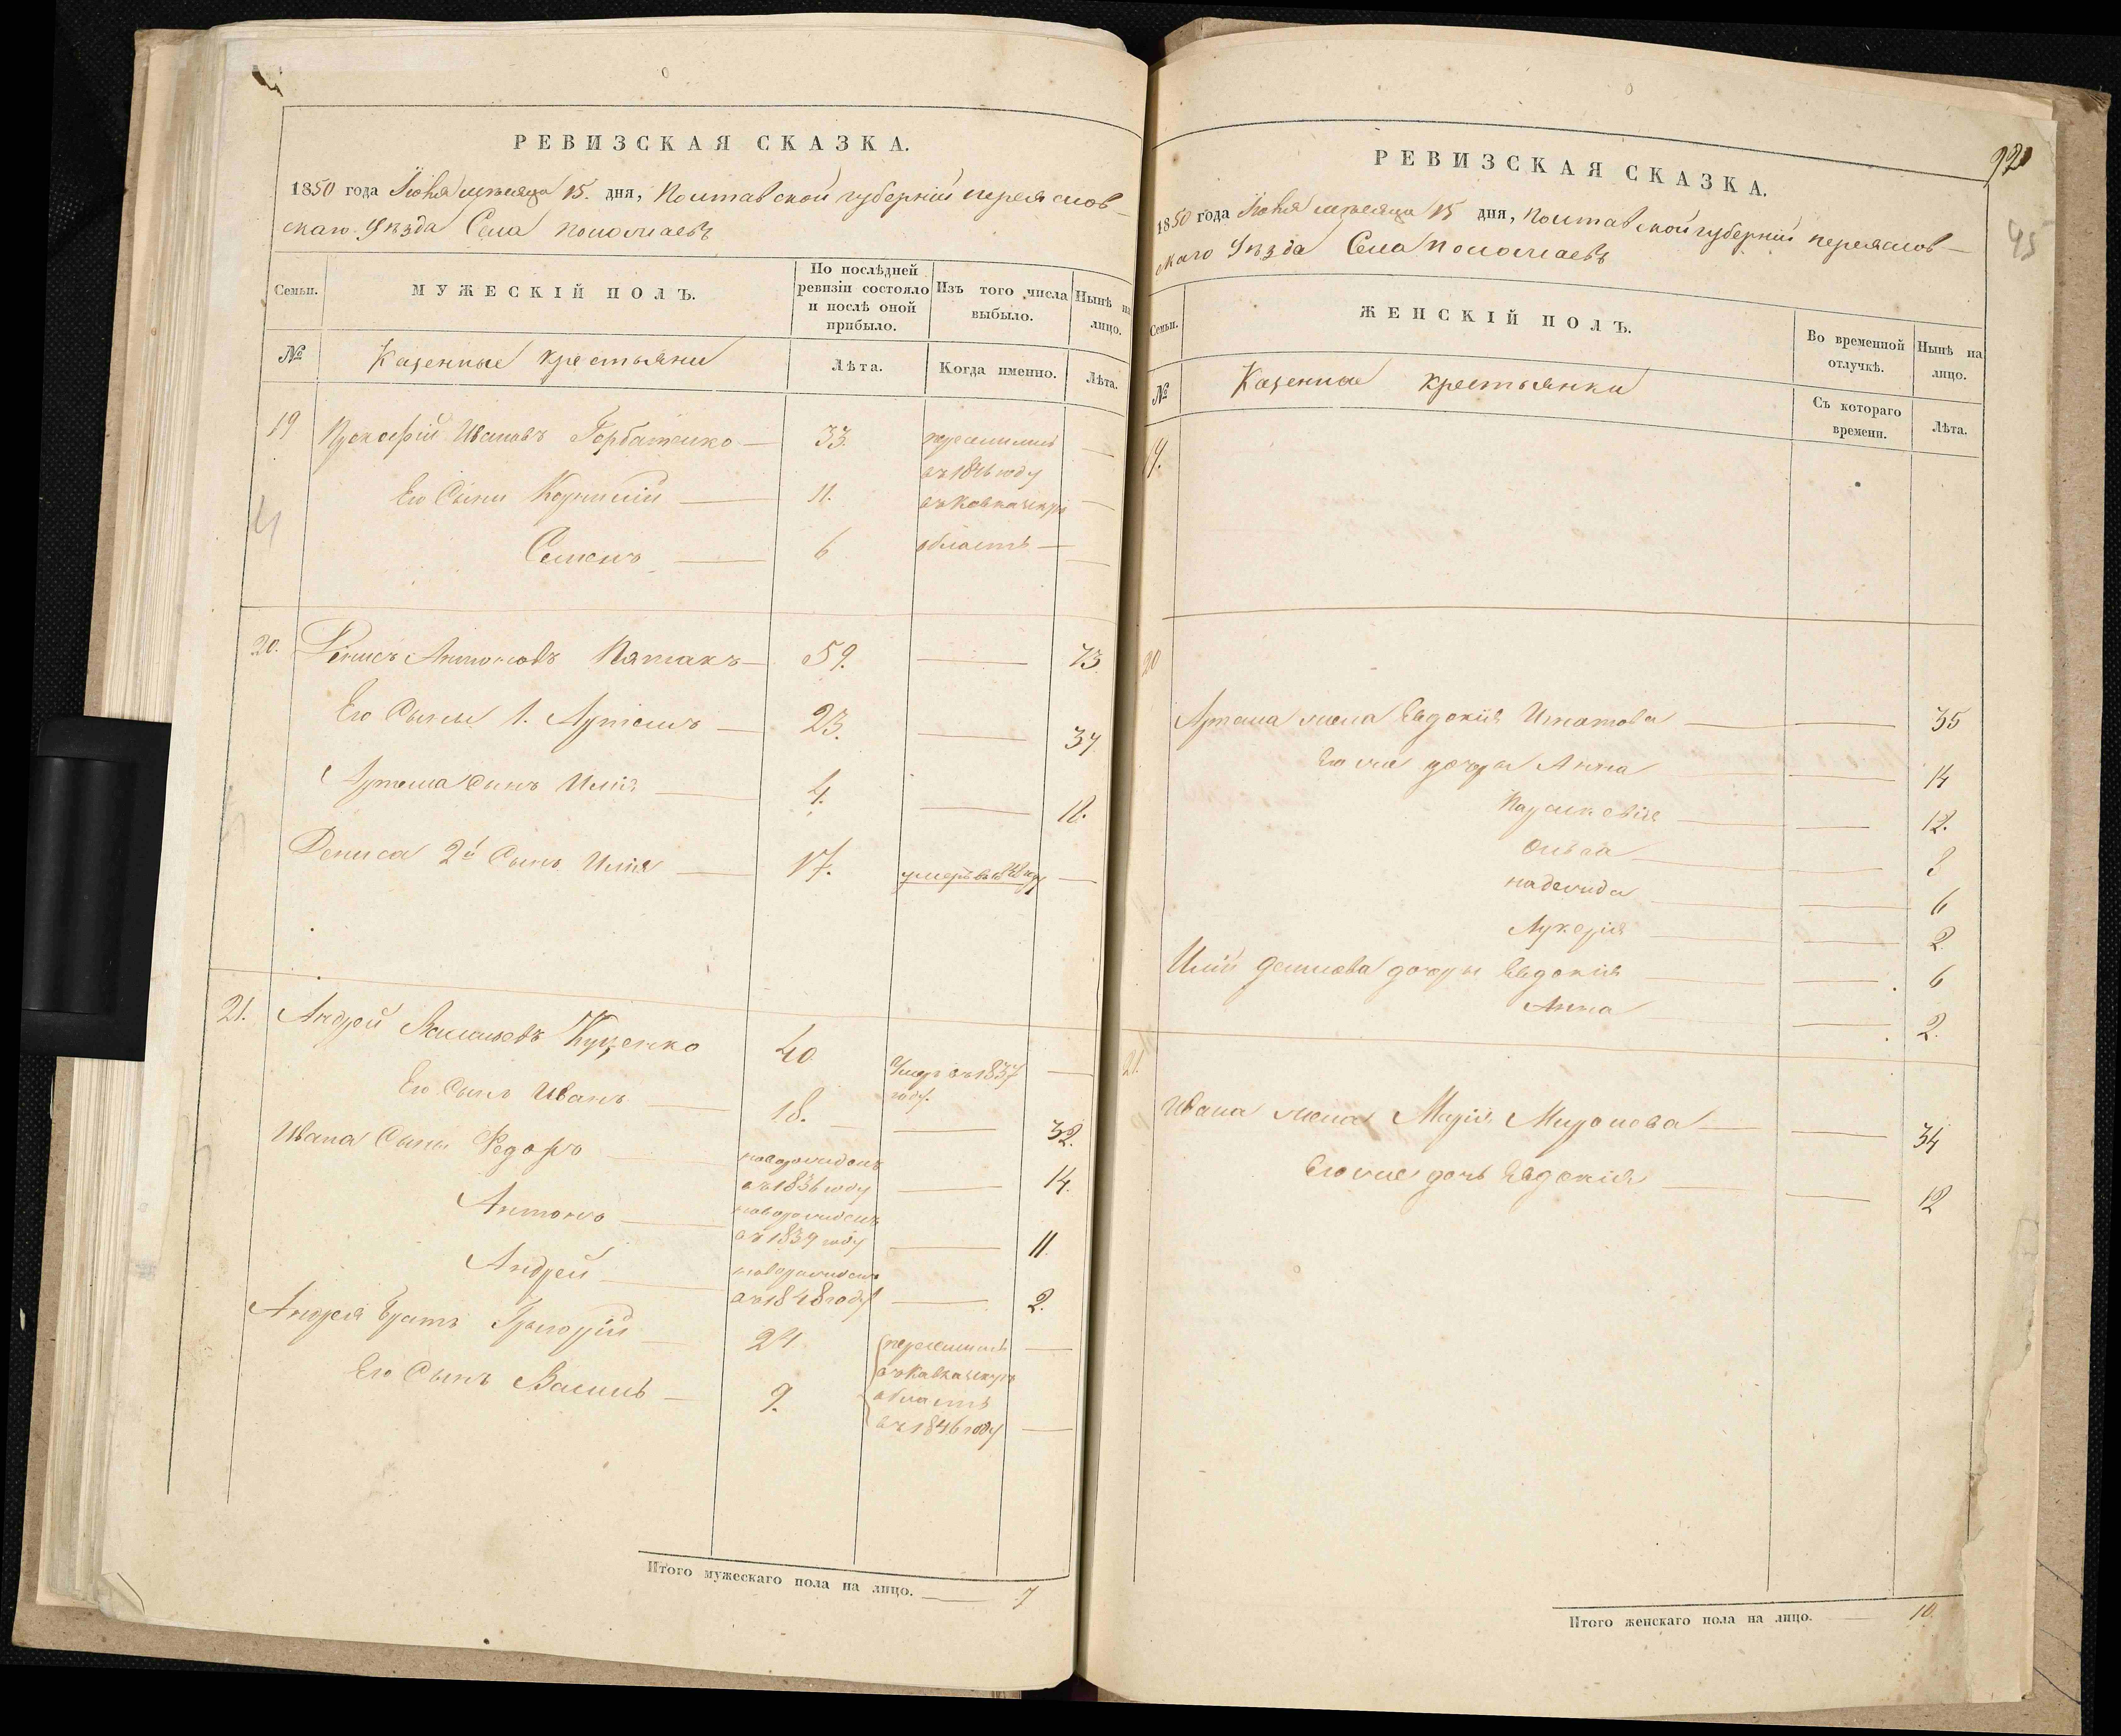 РЕВИЗСКАЯ СКАЗКА.
1850 года Іюня мѣсяца 15. дня, Полтавской губерніи переяслов-
скаго Уѣзда Села
Семьи.
МУЖЕСКІЙ ПОЛЪ.
По послѣдней ревизіи состояло и послѣ оной прибыло.
Изъ того числа выбыло.
Нынѣ на лицо.
№
Казенные крестьяни
Лѣта.
Когда именно.
Лѣта.
19 Прокофій Ивановъ Горбатенко — 33. переселились —
въ 1846 году
Его Сыни Корнилій — 11. въ Кавказскую —
Семенъ — 6 область — —
20. Денисъ Антоновъ Пятакъ — 59. — 73.
Его Сыны 1. Артемъ — 23. — 37.
Артема Сынъ Илія — 4. — 18.
Дениса 2й Сынъ Илія — 17. умеръ въ —
21. Андрей Васильевъ Куценко 40 Умеръ въ 1837 —
году.
Его Сынъ Иванъ — 18. — 32.
Ивана Сыни Федоръ — новорожденъ
въ 1836 году — 14.
Антонъ — новорожденъ
въ 1839 году — 11.
Андрей — новорожденъ
въ 1848 году — 2.
Андрея братъ Григорій — 24 переселились —
въ Кавказскую
Его Сынъ Василь — 9. область
въ 1846 году —
Итого мужескаго пола на лицо. — 7
920
45
РЕВИЗСКАЯ СКАЗКА.
1850 года Іюня мѣсяца 15 дня, Полтавской губерніи переяслов-
скаго Уѣзда Села
Семьи.
ЖЕНСКІЙ ПОЛЪ.
Во временной отлучкѣ.
Нынѣ на лицо.
№
Казенные крестьянки
Съ котораго времени.
Лѣта.
19.
20
Артема жена Евдокія Игнатова — — 35
Его же дочеры Анна — — 14
Параскевія — — 12.
Ольга — — 8
надежда — — 6
Лукерія — — 2.
Иліи Денисова дочеры Евдокія — — 6
Анна — 2.
21.
Ивана жена Марія Миронова — — 34
Его же дочь Евдокія — — 12
Итого женскаго пола на лицо. — 10.